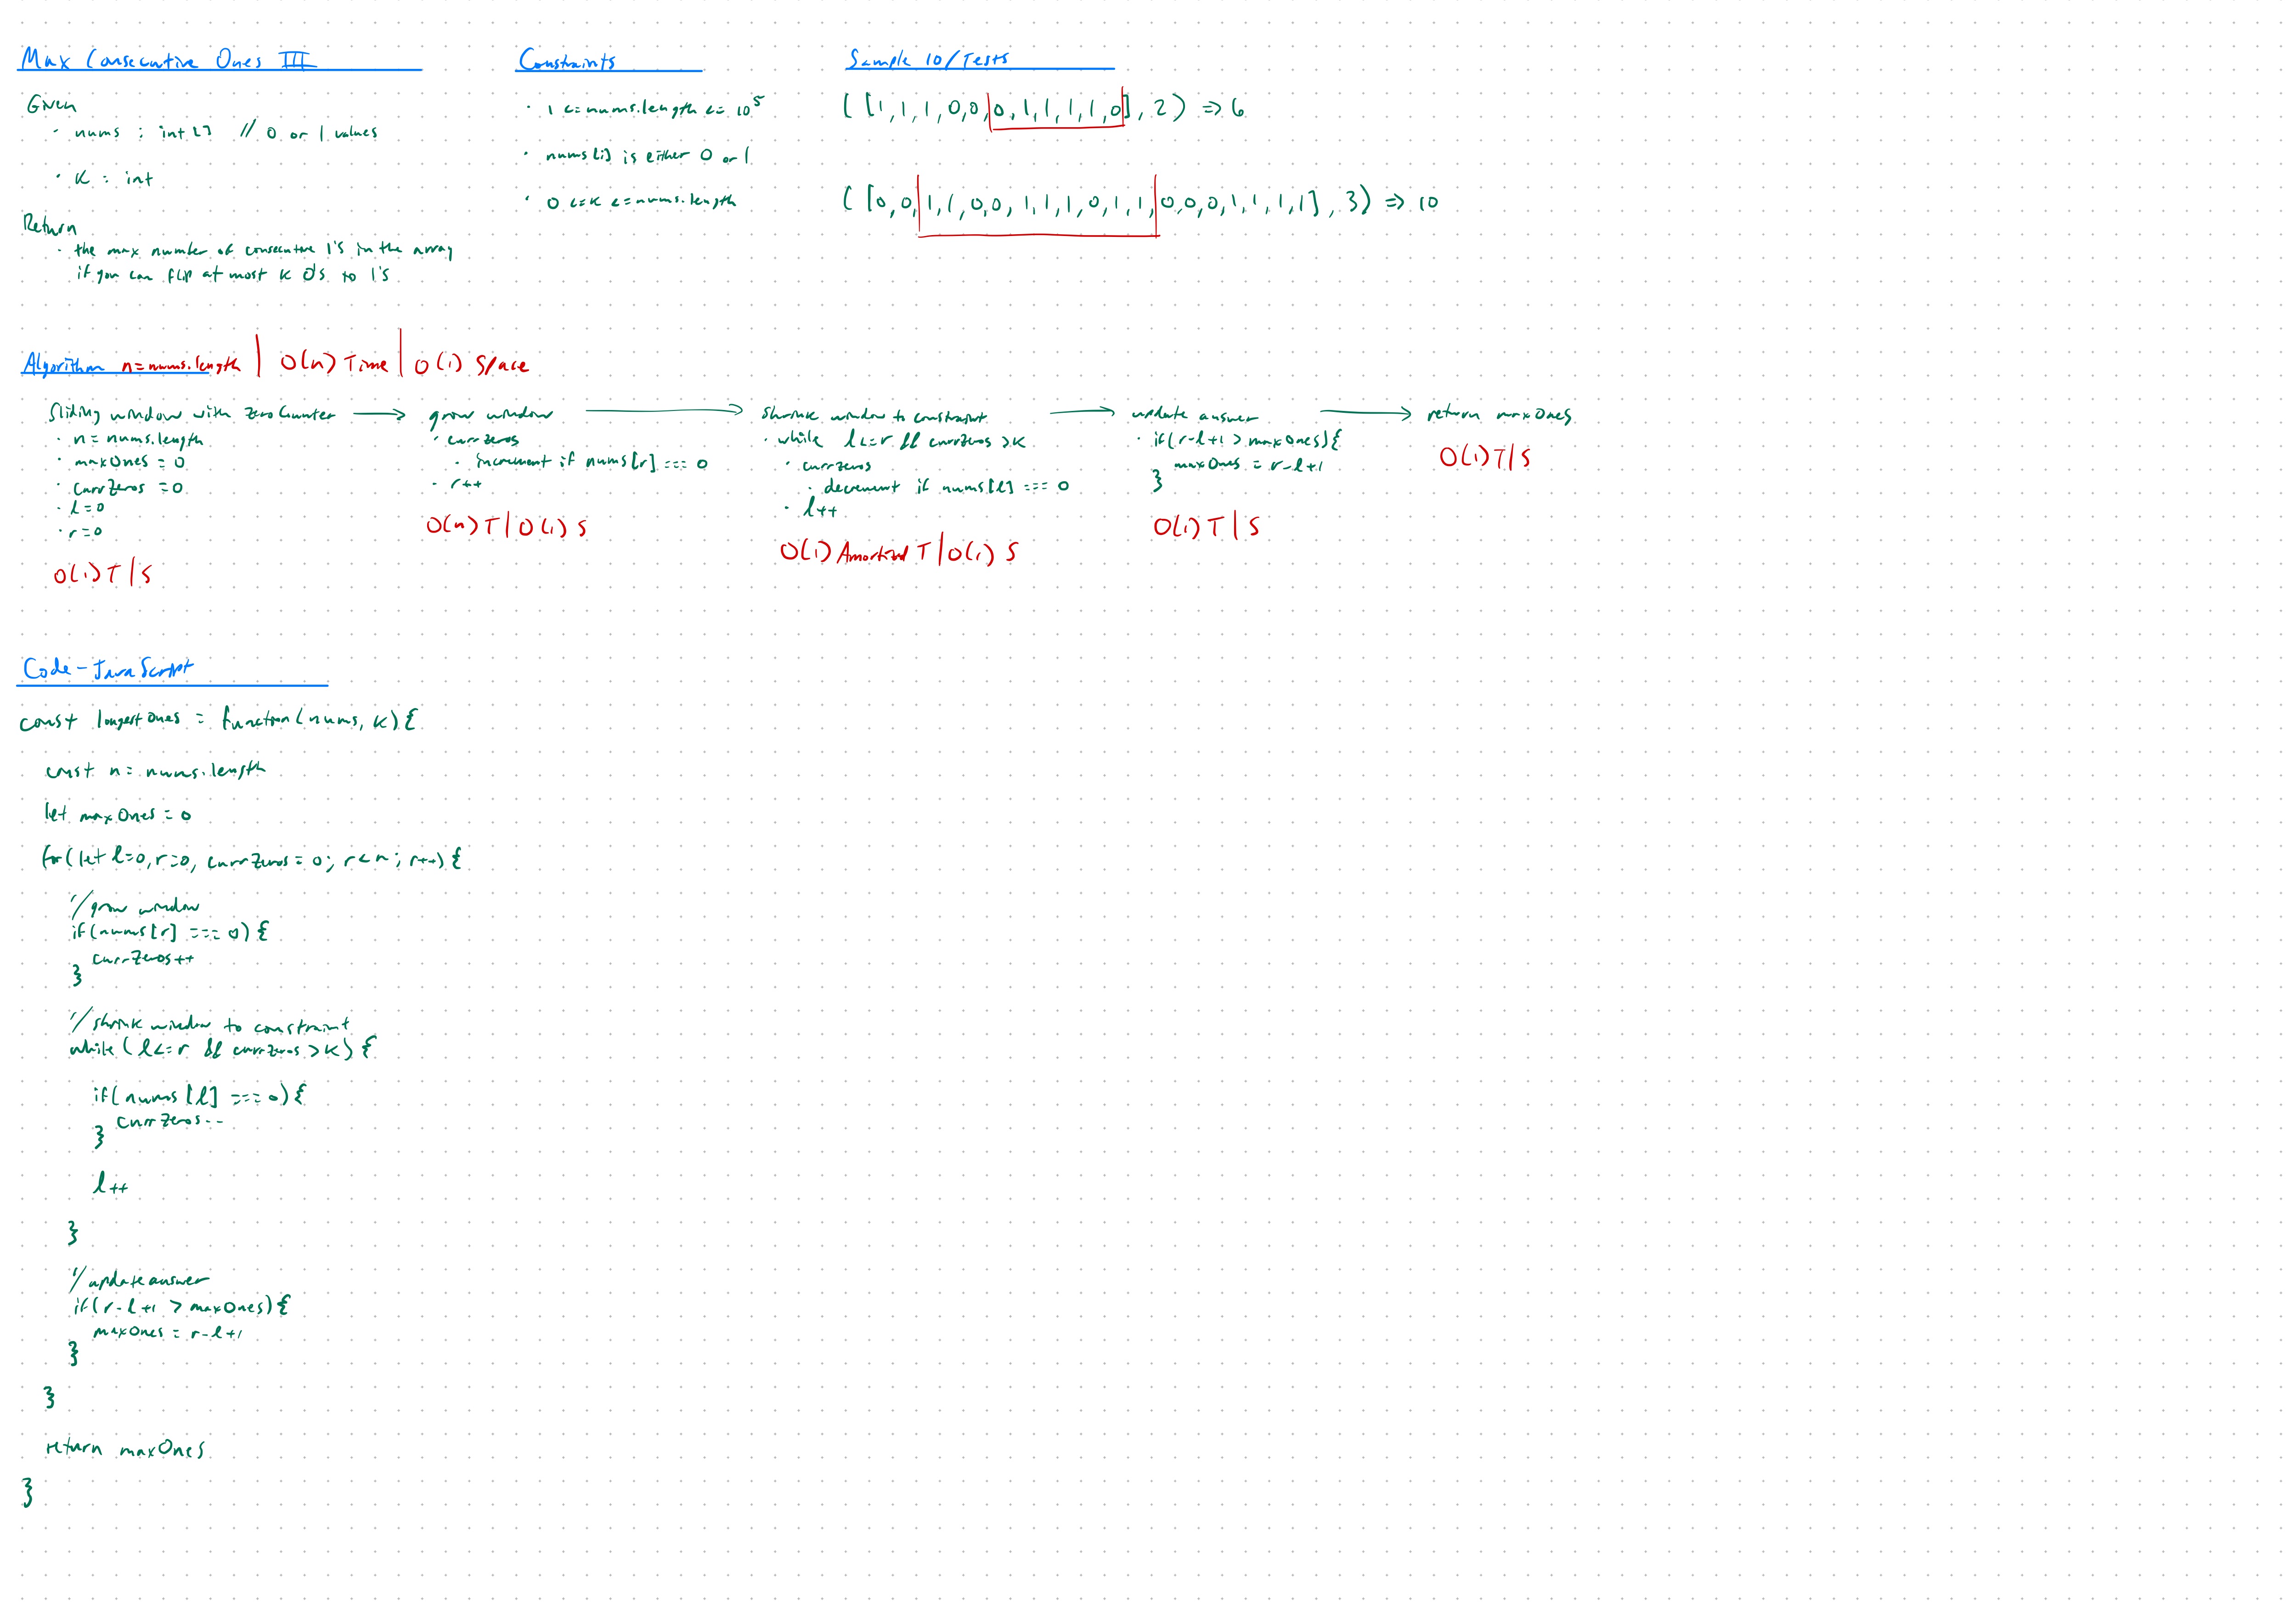 Max Consecutive Ones III
Given
· nums : int[] // 0 or 1 values
· K : int
Return
· the max number of consecutive 1's in the array
if you can flip at most K 0's to 1's
Constraints
· 1 <= nums.length <= 10^5
· nums[i] is either 0 or 1
· 0 <= K <= nums.length
Sample IO/Tests
( [1,1,1,0,0,0,1,1,1,1,0], 2 ) => 6
( [0,0,1,1,0,0,1,1,1,0,1,1,0,0,0,1,1,1,1], 3 ) => 10
Algorithm n=nums.length | O(n) Time | O(1) Space
Sliding window with zeroCounter →
· n = nums.length
· maxOnes = 0
· currZeros = 0
· l = 0
· r = 0
O(1) T|S
grow window →
· currZeros
· increment if nums[r] === 0
· r++
O(n) T|O(1) S
shrink window to constraint →
· while l<=r && currZeros >K
· currZeros
· decrement if nums[l] === 0
· l++
O(1) Amortized T|O(1) S
update answer →
· if(r-l+1 > maxOnes){
maxOnes = r-l+1
}
O(1) T|S
return maxOnes
O(1) T|S
Code - JavaScript
const longestOnes = function(nums, K){
const n = nums.length
let maxOnes = 0
for(let l=0, r=0, currZeros = 0; r<n; r++){
//grow window
if(nums[r] === 0){
currZeros++
}
//shrink window to constraint
while(l<=r && currZeros >K){
if(nums[l] === 0){
currZeros--
}
l++
}
//update answer
if(r-l+1 > maxOnes){
maxOnes = r-l+1
}
}
return maxOnes
}